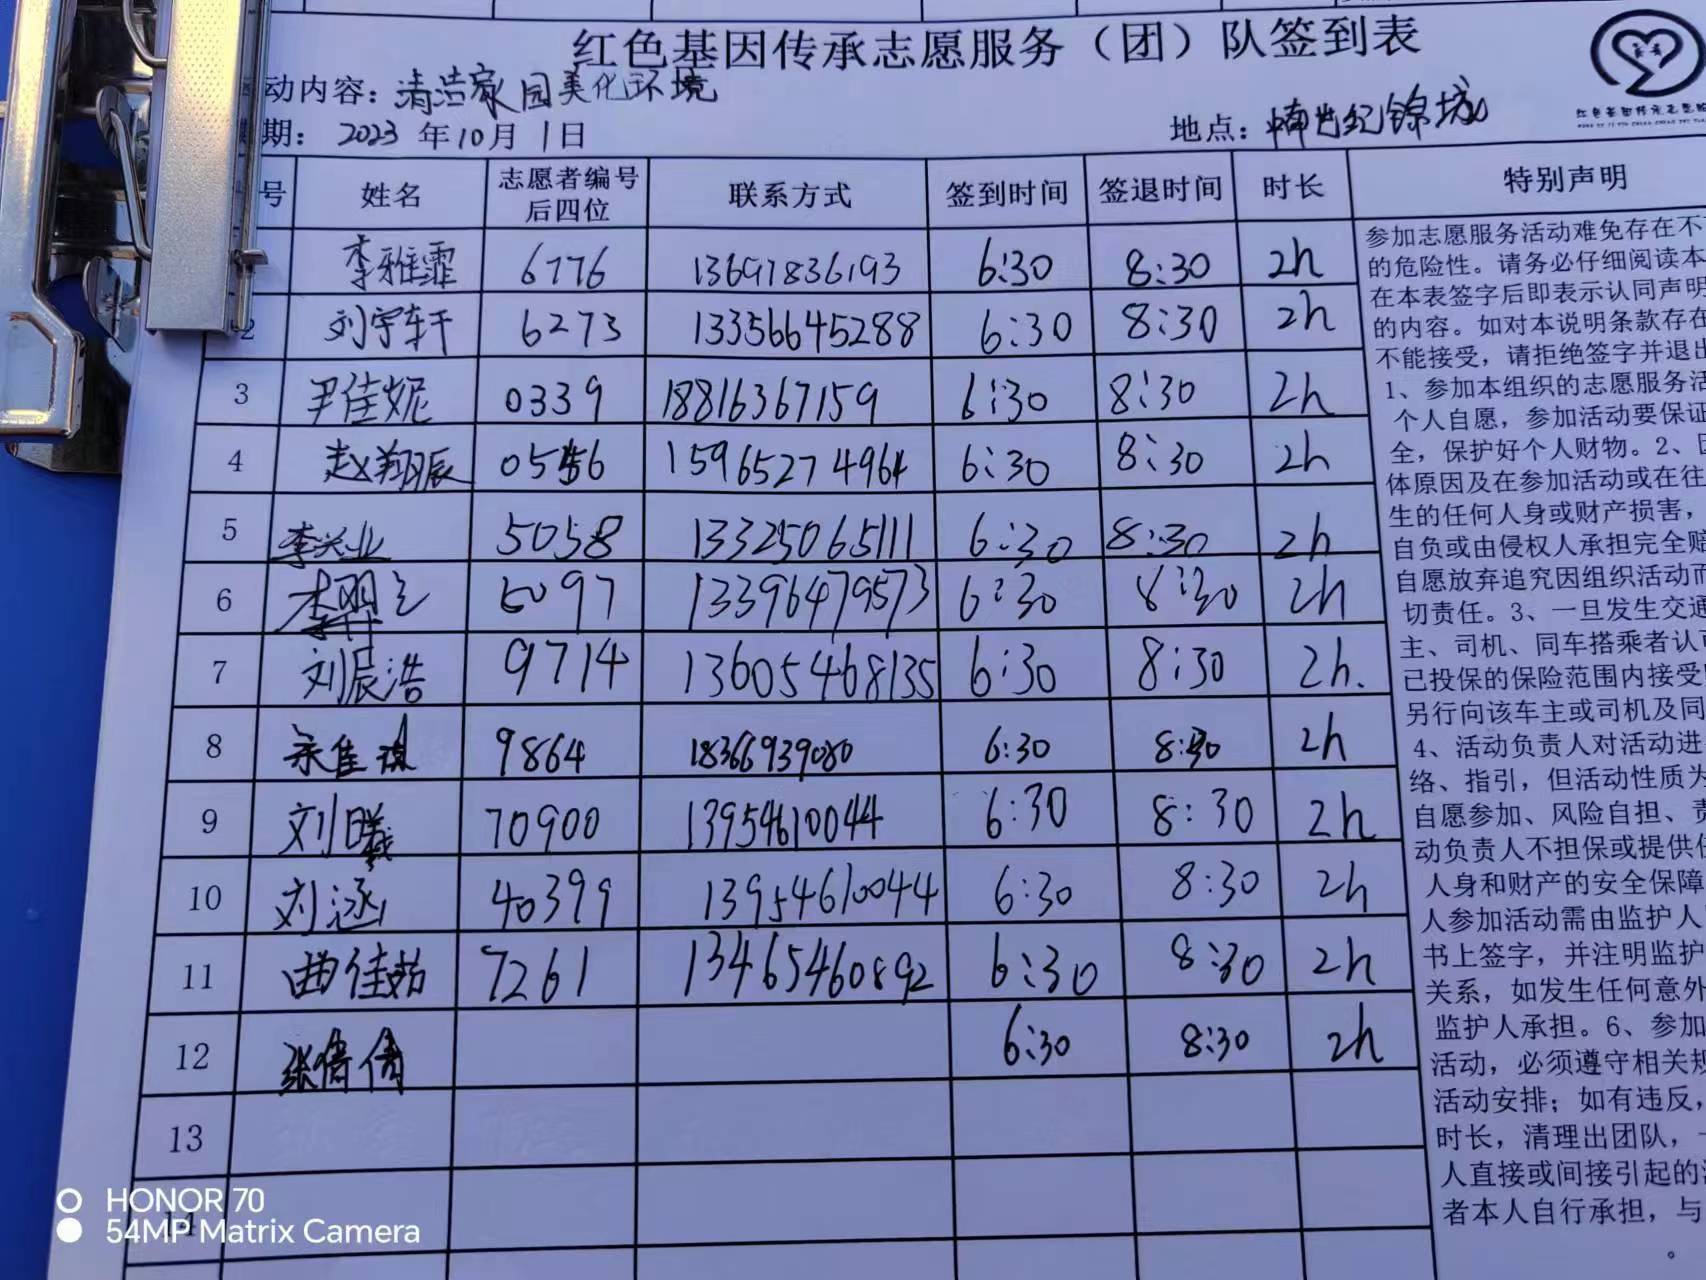 红色基因传承志愿服务（团）队签到表
动内容：清洁家园美化环境
期：2023年10月1日 地点：世纪锦城
号 姓名 志愿者编号后四位 联系方式 签到时间 签退时间 时长 特别声明
李雅霏 6776 13697836193 6:30 8:30 2h
2 刘宇轩 6273 13356645288 6:30 8:30 2h
3 尹佳妮 0339 18816367159 6:30 8:30 2h
4 赵翔辰 0556 15965274964 6:30 8:30 2h
5 李兴业 5058 13325065111 6:30 8:30 2h
6 李 5097 13396479573 6:30 8:30 2h
7 刘辰浩 9714 13605468135 6:30 8:30 2h.
8 佳琪 9864 18366939080 6:30 8:30 2h
9 刘曦 70900 13954610044 6:30 8:30 2h
10 刘涵 40399 13954610044 6:30 8:30 2h
11 曲佳茹 7261 13465460892 6:30 8:30 2h
12 张倩倩 6:30 8:30 2h
13
14
参加志愿服务活动难免存在不
的危险性。请务必仔细阅读本
在本表签字后即表示认同声明
的内容。如对本说明条款存在
不能接受，请拒绝签字并退出
1、参加本组织的志愿服务活
个人自愿，参加活动要保证
全，保护好个人财物。2、因
体原因及在参加活动或在往
生的任何人身或财产损害，
自负或由侵权人承担完全赔
自愿放弃追究因组织活动而
切责任。3、一旦发生交通
主、司机、同车搭乘者认可
已投保的保险范围内接受
另行向该车主或司机及同
4、活动负责人对活动进
络、指引，但活动性质为
自愿参加、风险自担、责
动负责人不担保或提供任
人身和财产的安全保障
人参加活动需由监护人
书上签字，并注明监护
关系，如发生任何意外
监护人承担。6、参加
活动，必须遵守相关规
活动安排；如有违反，
时长，清理出团队，
人直接或间接引起的
者本人自行承担，与
。
HONOR 70
54MP Matrix Camera